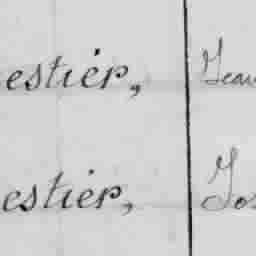 estier, Jean
estier, Jos